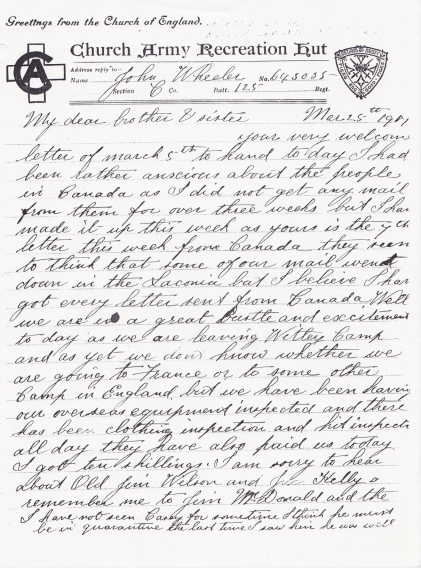 Greetings from the Church of England.
Church Army Recreation Hut
CA
Address reply to
Name John Wheeler No. 643035
Section C Co. Batt. 125 Regt.
My dear brother & sister Mar 25th
your very welcom
letter of march 5th to hand to day I had
been rather anscious about the people
in Canada as I did not get any mail
from them for over three weeks but I hav
made it up this week as yours is the
letter this week from Canada they seem
to think that some of our mail went
down in the Laconia but I believe I hav
got every letter sent from Canada Well
we are in a great Bustle and excitement
to day as we are leaving Witley Camp
and as yet we dont know whether we
are going to France or to some other
Camp in England but we have been having
our overseas equipment inspected and there
has been clothing inspection and kit inspecti
all day they have also paid us today
I got ten shillings. I am sorry to hear
about Old Jim Wilson and Kelly
remember me to Jim McDonald and the
I have not seen for sometime I think he must
be in quarantine the last time I saw him he was well